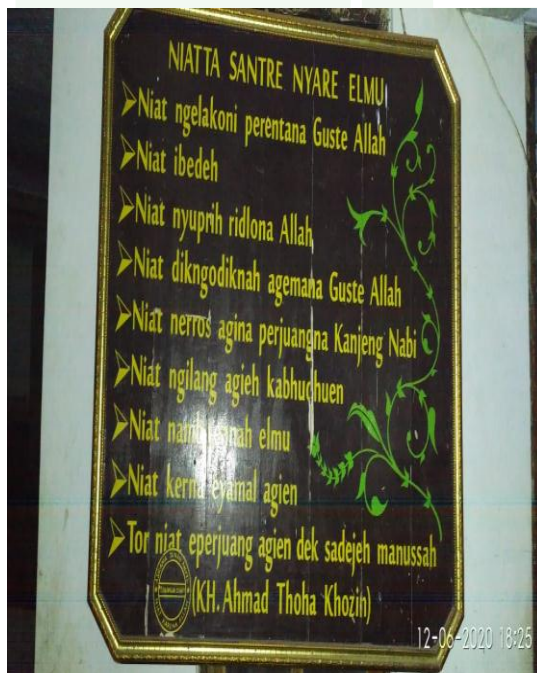 NIATTA SANTRE NYARE ELMU
➢Niat ngelakoni perentana Guste Allah
➢Niat ibedeh
➢Niat nyuprih ridlona Allah
➢Niat dikngodiknah agemana Guste Allah
➢Niat nerros agina perjuangna Kanjeng Nabi
➢Niat ngilang agieh kabhuchuen
➢Niat elmu
➢Niat kerna eyamal agien
➢Tor niat eperjuang agien dek sadejeh manussah
(KH. Ahmad Thoha Khozin)
12-06-2020 18:25